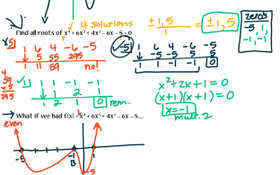 4 solutions
±1, 5
1
= ±1, 5
zeros
-5, 1
-1, -1
Find all roots of x⁴ + 6x³ + 4x² - 6x - 5 = 0
×5
1 6 4 -6 -5
5 55 295
1 11 59 no!
-5
1 6 4 -6 -5
1 1 -1 -1 0
59
×5
295
1 1 -1 -1
1 2 1
1 2 1 0 rem.
x² + 2x + 1 = 0
(x+1)(x+1) = 0
x = -1
mult. 2
What if we had f(x) = x⁴ + 6x³ + 4x² - 6x - 5
even
-5
-1
B
1
-5